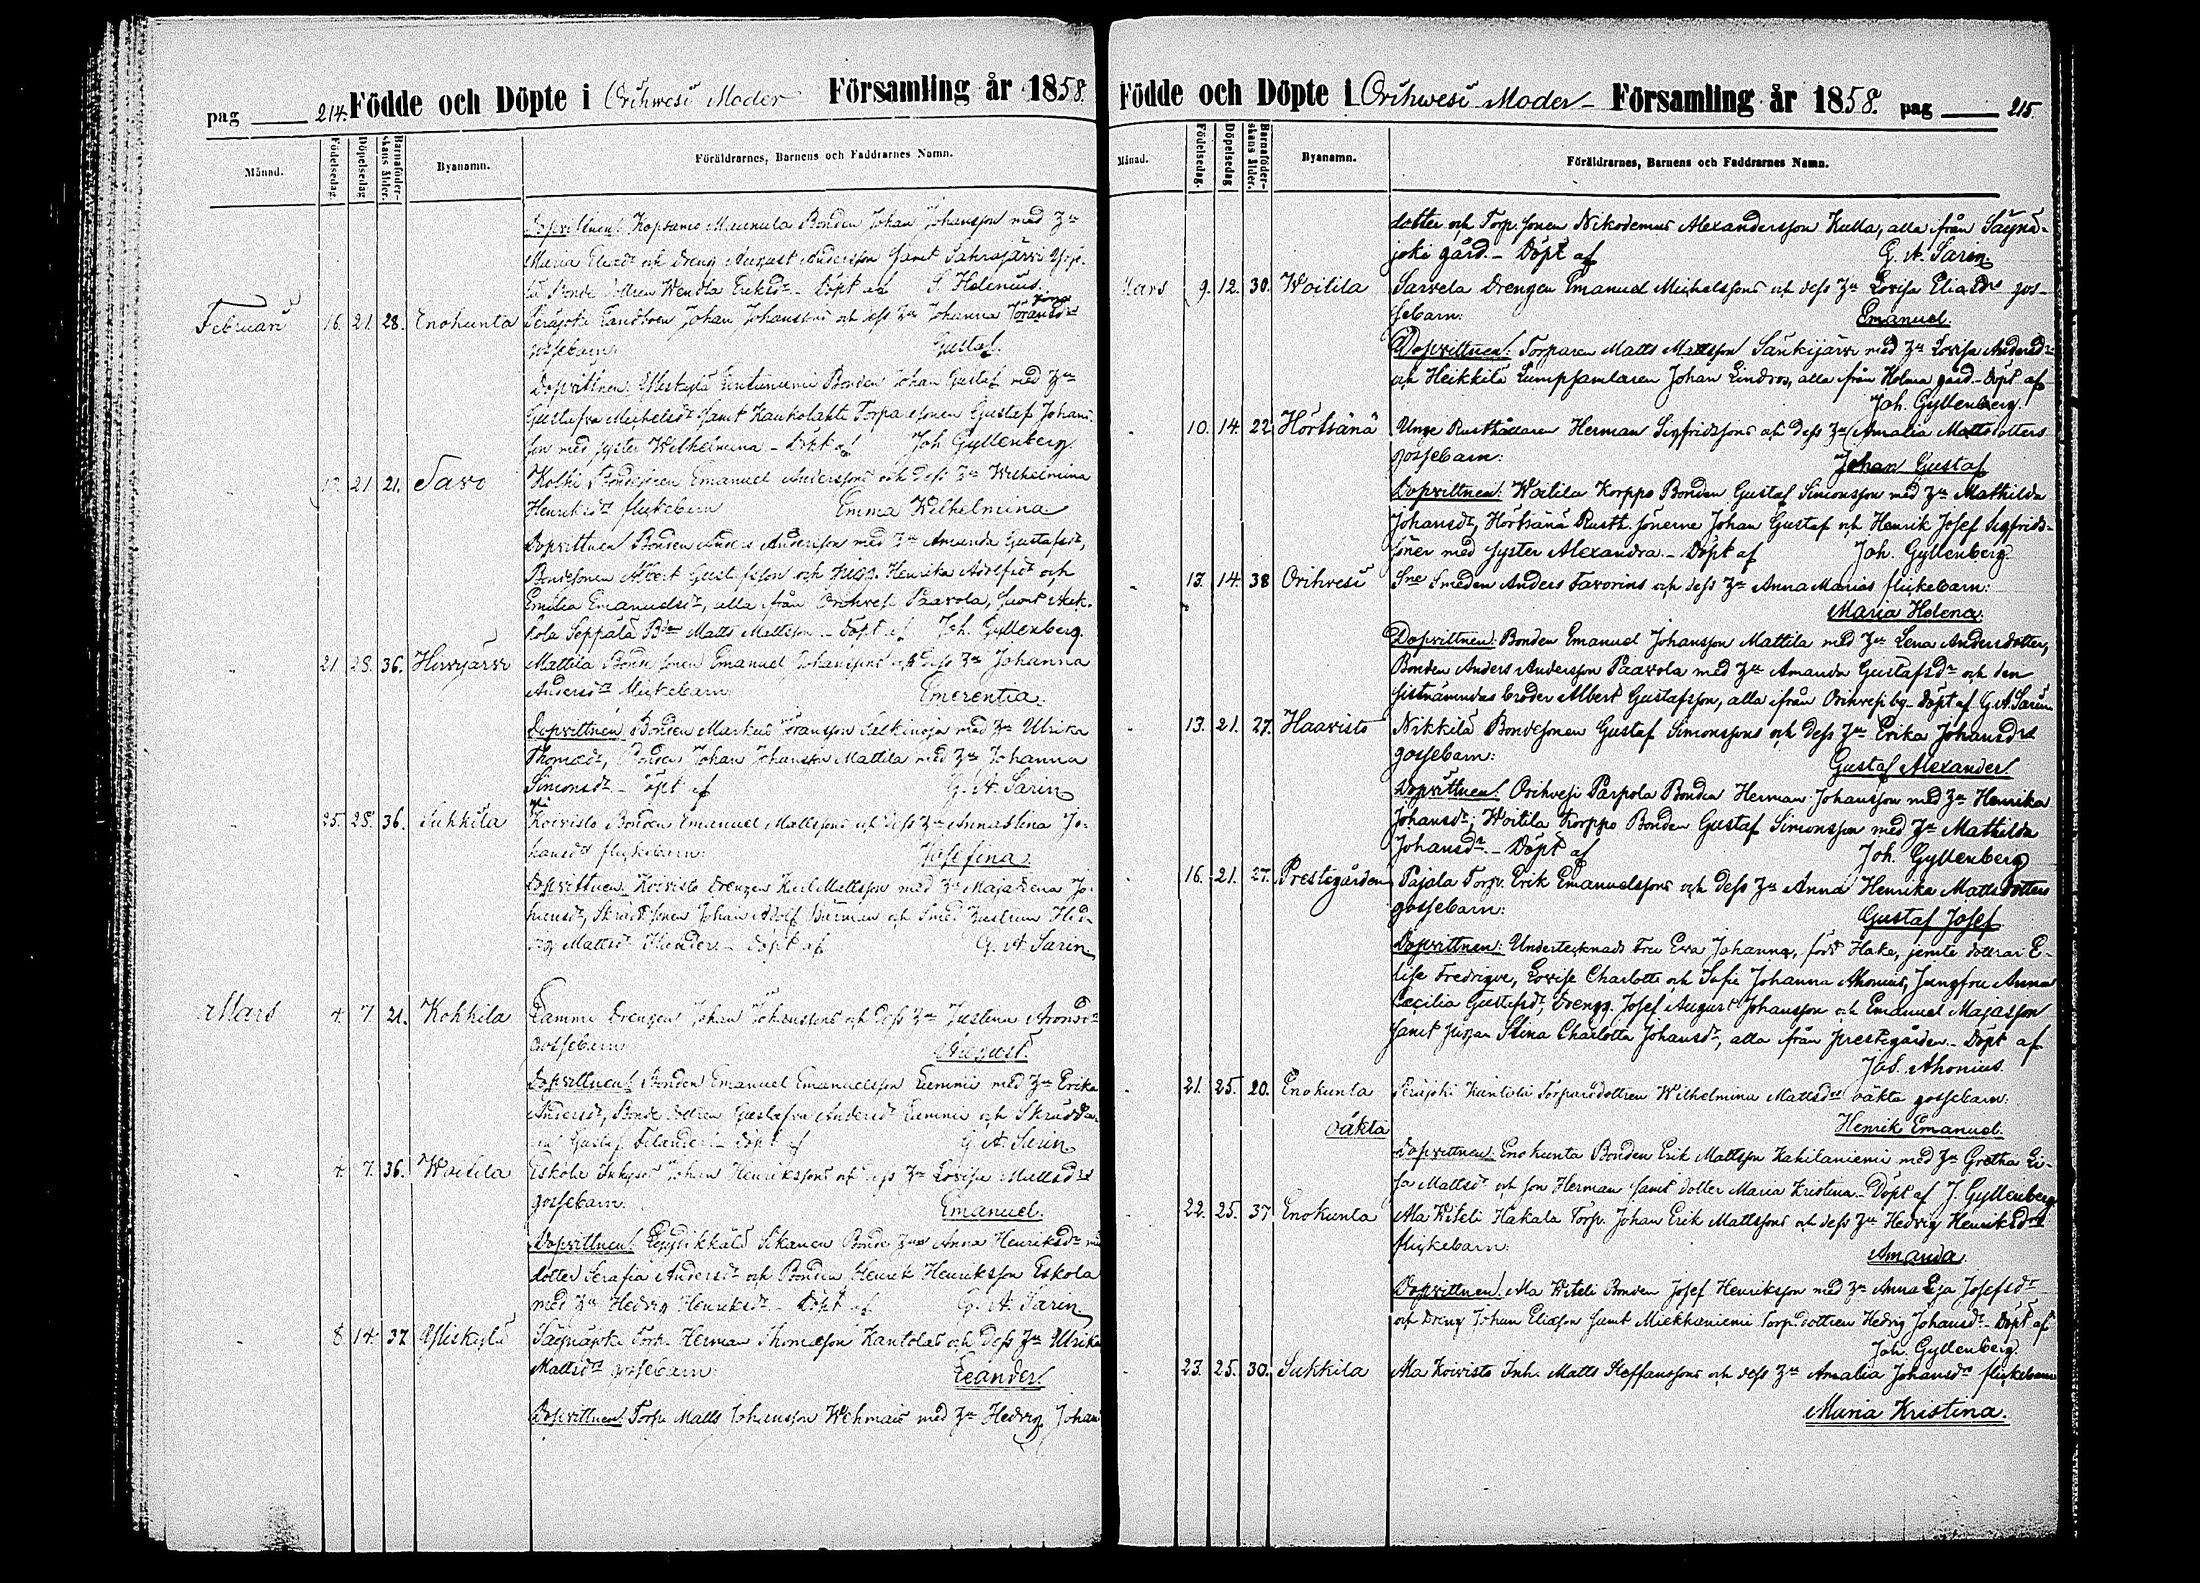 pag 214. Födde och Döpte i Orihwesi Moder Församling år 1858.
Månad.
Födelsedag
Döpelsedag
Barnaföder-
skans ålder.
Byanamn.
Föräldrarnes, Barnens och Faddrarnes Namn.
Dopvittnen: Kopsamo Bonden Johan Johansson med hu
Maria och Dreng August Andersson samt
Bonde dottren Wendla Eriksdr Döpt af S. Helenius.
Februari 16. 21. 28. Enokunta Johan Johanssons och dess hu Johanna
gossebarn: Gustaf.
Dopvittnen: Bonden Johan Gustaf med hu
Gustafva Michelsdr samt Torpare sonen Gustaf Johans-
son med syster Wilhelmina - Döpt af Joh. Gyllenberg.
21 21. Savo Kolhi Bondesonen Emanuel Anderssons och dess hu Wilhelmina
Henriksdr flickebarn Emma Wilhelmina
Dopvittnen Bonden Anders Andersson med hu Amanda Gustafsdr,
Bondesonen Albert Gustafsson och pigo. Henrika Adolfsdr och
Emilia Emanuelsdr, alla ifrån Orihvesi Paavola, samt
Seppälä Matts Mattsson - Döpt af Joh. Gyllenberg.
21. 28. 36. Hirvijärvi Mattila Bonde sonen Emanuel Johanssons och dess hu Johanna
Andersdrs flickebarn Emerentia.
Dopvittnen: Bonden Markus med hu Ulrika
Thomasdr, Bonden Johan Johansson Mattila med hu Johanna
Simonsdr - Döpt af G. A. Sarin
25. 28. 36. Sukkila Koivisto Bonden Emanuel Mattssons och dess hu Annastina Jo-
hansdrs flickebarn: Josefina.
Dopvittnen: Koivisto Drengen Karl Mattsson med hu Maja Lena Jo-
hansdr, Skräd. sonen Johan Adolf och Smed Hed-
vig Mattsdr - Döpt af G. A. Sarin
Mars 4. 7. 21. Kokkila Lammi Drengen Johan Johanssons och dess hu Justina
Gossebarn August.
Dopvittnen: Bonden Emanuel Emanuelsson Lammi med hu Erika
Andersdr, Bonde dottren Gustafva Andersdr Lammi och Skräddar
Gustaf Filander - Döpt af G. A. Sarin
4. 7. 36. Woitila Eskola Johan Henrikssons och dess hu Lovisa Mattsdrs
gossebarn: Emanuel.
Dopvittnen: Sikanen Bonde Anna Henriksdr med
dotter Serafia Andersdr och Bonden Henrik Henriksson Eskola
med hu Hedvig Henriksdr - Döpt af G. A. Sarin
8. 14. 37. Yliskylä Säynäjoki Torp. Herman Thomasson Kantolas och dess hu Ulrika
Mattsdrs gossebarn: Leander.
Dopvittnen: Torp. Matts Johansson Wehmais med hu Hedvig Johans
Födde och Döpte i Orihwesi Moder Församling år 1858. pag 215.
Månad.
Födelsedag.
Döpelsedag
Barnaföder-
skans ålder.
Byanamn.
Föräldrarnes, Barnens och Faddrarnes Namn.
dotter och Torp. sonen Nikodemus Alexandersson Kulla, alla ifrån Säynä-
joki gård. - Döpt af G. A. Sarin.
Mars 9. 12. 30. Woitila Sarvela Drengen Emanuel Michelssons och dess hu Lovisa Eliasdrs gos-
sebarn: Emanuel.
Dopvittnen: Torparen Matts Mattsson Sänkijärvi med hu Lovisa Andersdr
och Heikkilä Lumpsamlaren Johan Lindros, alla ifrån Holma gård. - Döpt af
Joh. Gyllenberg.
10. 14. 22. Hörtsänä Unge Rusthållaren Herman Sigfridssons och dess hu Amalia Mattsdotters
gossebarn: Johan Gustaf
Dopvittnen: Woitila Korppo Bonden Gustaf Simonsson med hu Mathilda
Johansdr, Hörtsänä Rusth. sönerne Johan Gustaf och Henrik Josef Sigfrids-
söner med syster Alexandra. - Döpt af Joh. Gyllenberg.
13. 14. 38 Orihvesi Sne Smeden Anders Favorins och dess hu Anna Marias flickebarn:
Maria Helena.
Dopvittnen: Bonden Emanuel Johansson Mattila med hu Lena Andersdotter,
Bonden Anders Andersson Paavola med hu Amanda Gustafsdr och den
sistnämndas broder Albert Gustafsson, alla ifrån Orihvesi by - Döpt af G. A. Sarin
13. 21. 27. Haavisto Nikkilä Bondesonen Gustaf Simonssons och dess hu Erika Johansdrs
gossebarn: Gustaf Alexander.
Dopvittnen: Orihvesi Parpola Bonden Herman Johansson med hu Henrika
Johansdr, Woitila Korppo Bonden Gustaf Simonsson med hu Mathilda
Johansdr. - Döpt af Joh. Gyllenberg
16. 21. 27. Prestegården Pajala Torp. Erik Emanuelssons och dess hu Anna Henrika Mattsdotters
gossebarn: Gustaf Josef.
Dopvittnen: Undertecknads Fru Eva Johanna, född Hake, jemte döttrar E-
lise Fredrique, Lovise Charlotte och Sofie Johanna Ahonius, Jungfru Anna
Cæcilia Gustafsdr, Drengg. Josef August Johansson och Emanuel Majasson
samt pigan Stina Charlotta Johansdr, alla ifrån prestegården. - Döpt af
Jos. Ahonius.
21. 25. 20. Enokunta Peräjoki Torparedottren Wilhelmina Mattsdrs oäkta gossebarn:
oäkta Henrik Emanuel.
Dopvittnen: Enokunta Bonden Erik Mattsson Kakilaniemi med hu Gretha Li-
sa Mattsdr och son Herman samt dotter Maria Kristina. - Döpt af J. Gyllenberg
22. 25. 37 Enokunta Ala Witeli Hakala Torp. Johan Erik Mattssons och dess hu Hedvig Henriksdrs
flickebarn: Amanda.
Dopvittnen: Ala Witeli Bonden Josef Henriksson med hu Anna Josefsdr
och Dreng Johan Eliasson samt Miekkaniemi Torp. dottren Hedvig Johansdr - Döpt af
Joh. Gyllenberg.
23. 25. 30. Sukkila Ala Koivisto Inh. Matts Steffanssons och dess hu Amalia Johansdrs flickebarn
Maria Kristina.